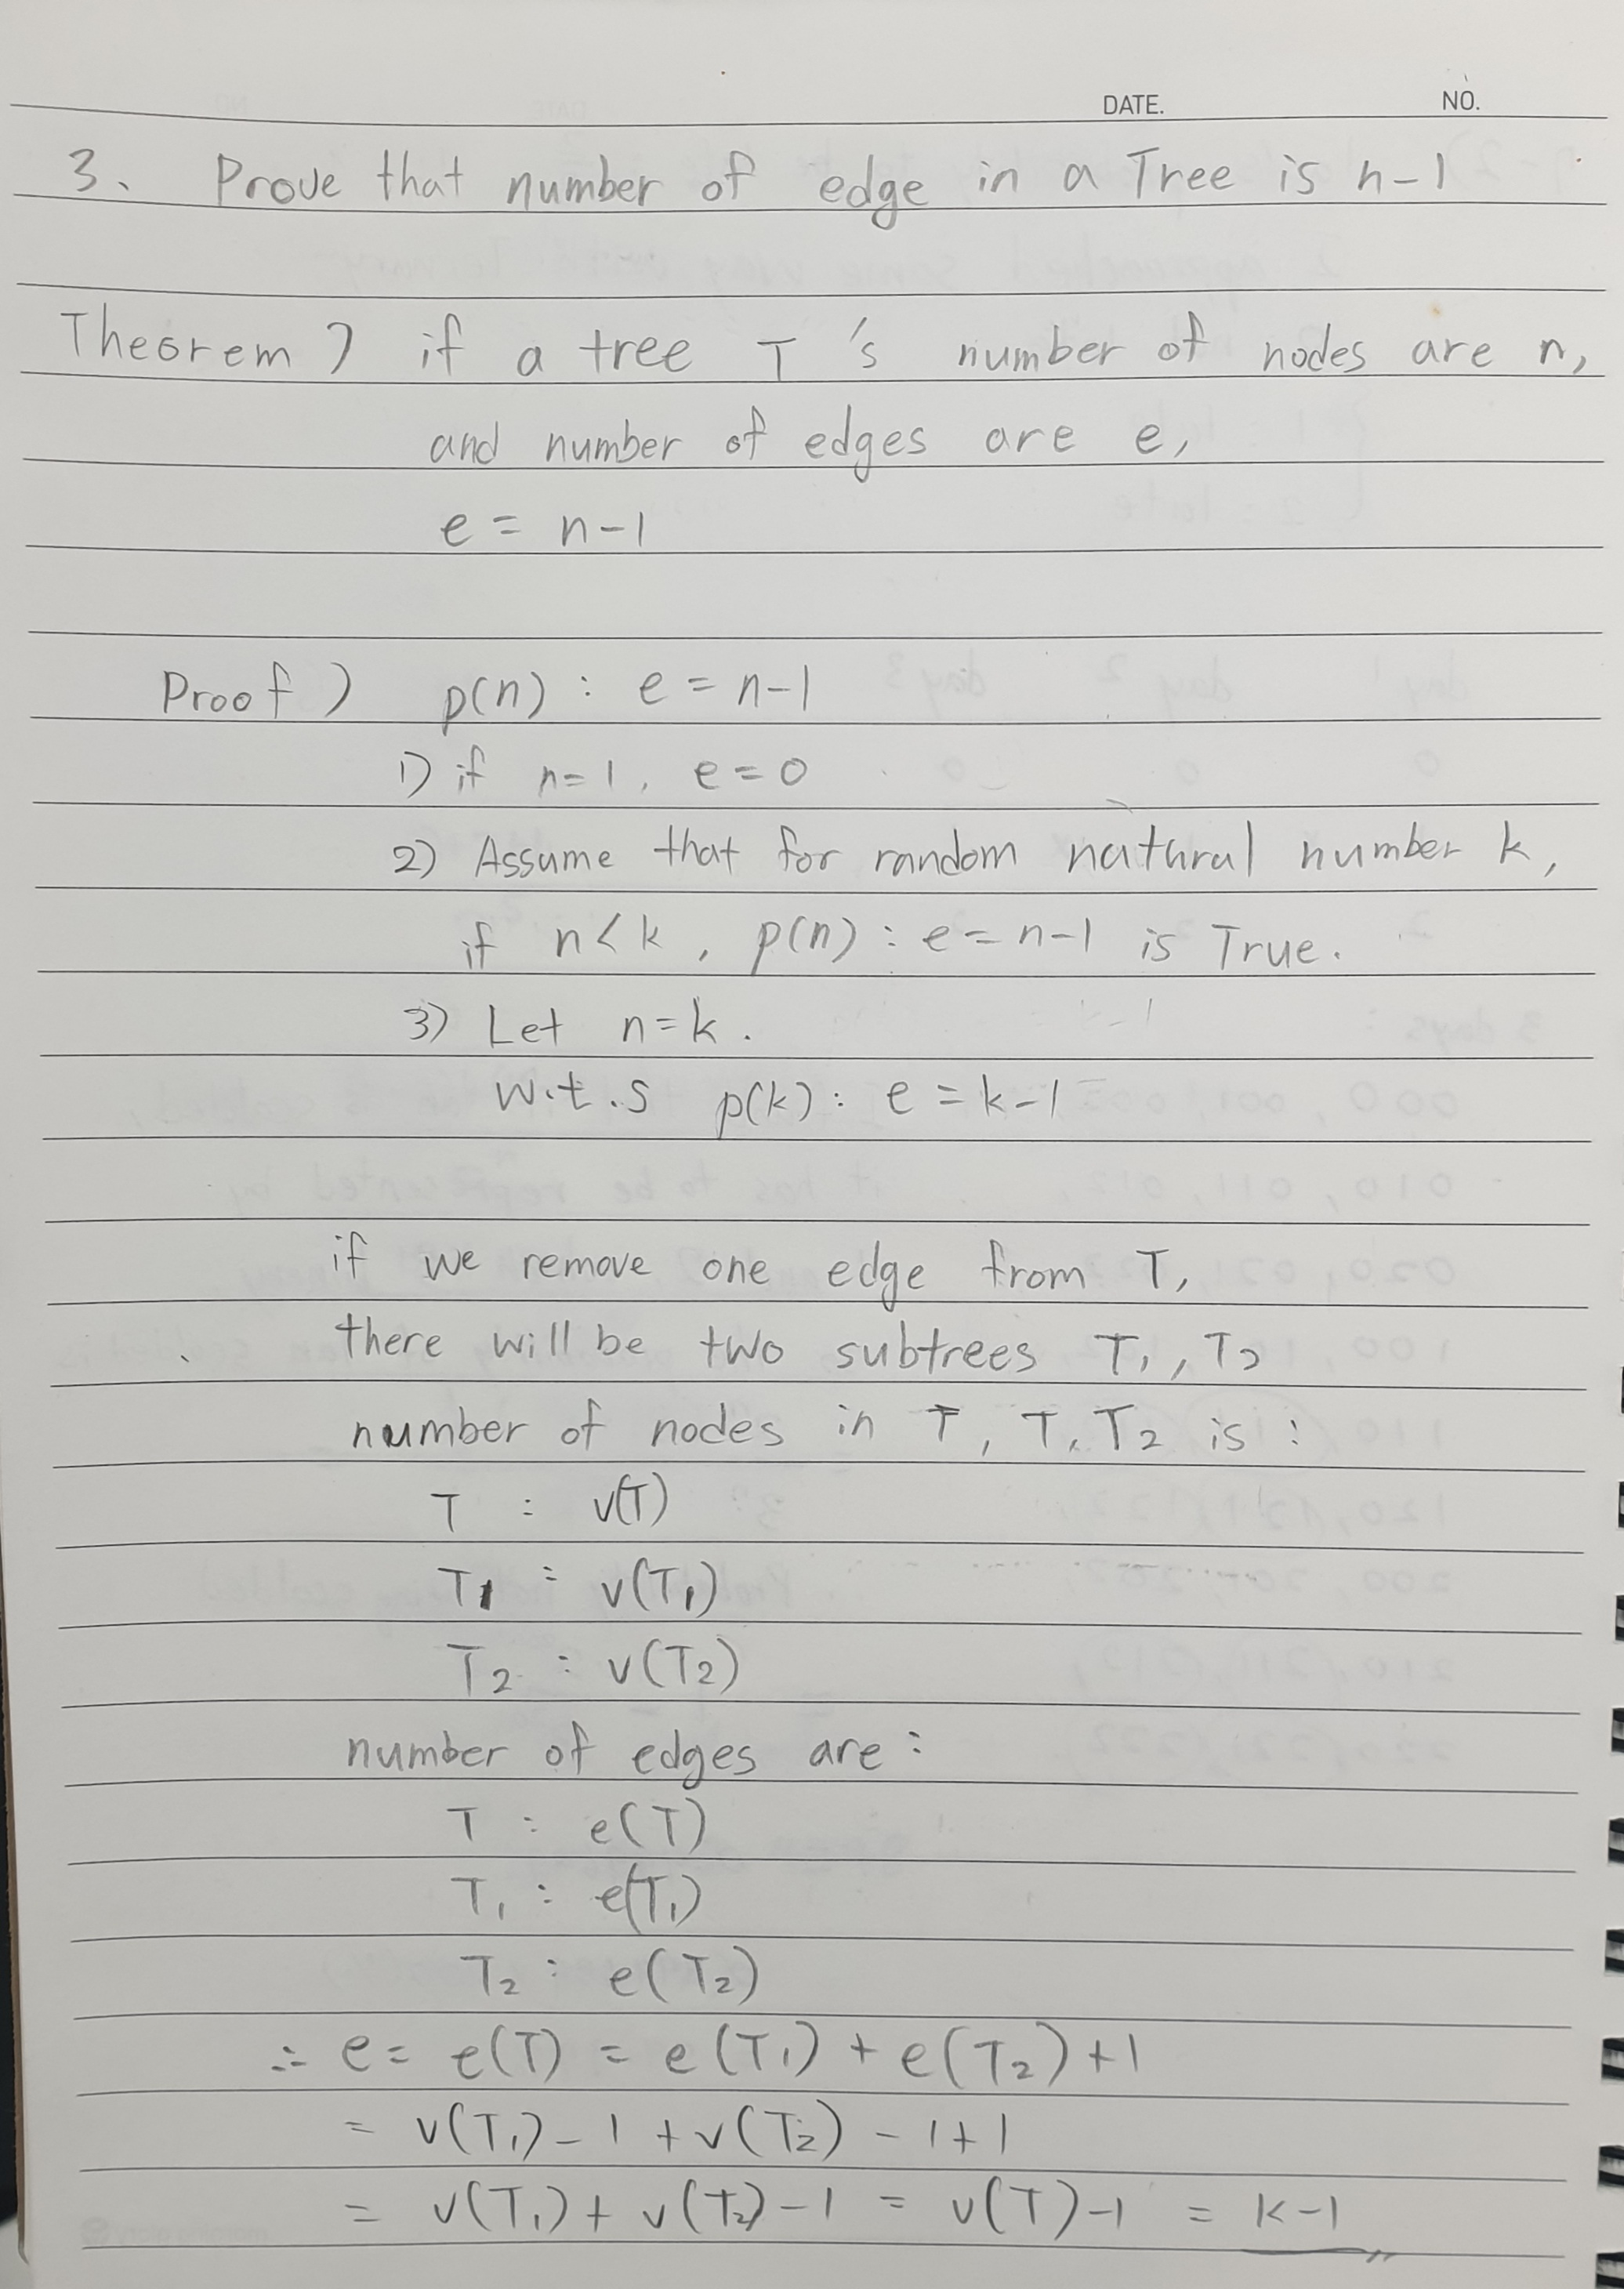 DATE. NO.
3. Prove that number of edge in a Tree is n-1
Theorem) if a tree T's number of nodes are n,
and number of edges are e,
e = n-1
Proof) p(n) : e = n-1
1) if n=1, e=0
2) Assume that for random natural number k,
if n<k, p(n) : e = n-1 is True.
3) Let n=k.
w.t.s p(k) : e = k-1
if we remove one edge from T,
there will be two subtrees T₁, T₂
number of nodes in T, T₁ T₂ is :
T : v(T)
T₁ : v(T₁)
T₂ : v(T₂)
number of edges are :
T : e(T)
T₁ : e(T₁)
T₂ : e(T₂)
∴ e = e(T) = e(T₁) + e(T₂) + 1
= v(T₁) - 1 + v(T₂) - 1 + 1
= v(T₁) + v(T₂) - 1 = v(T) - 1 = k-1